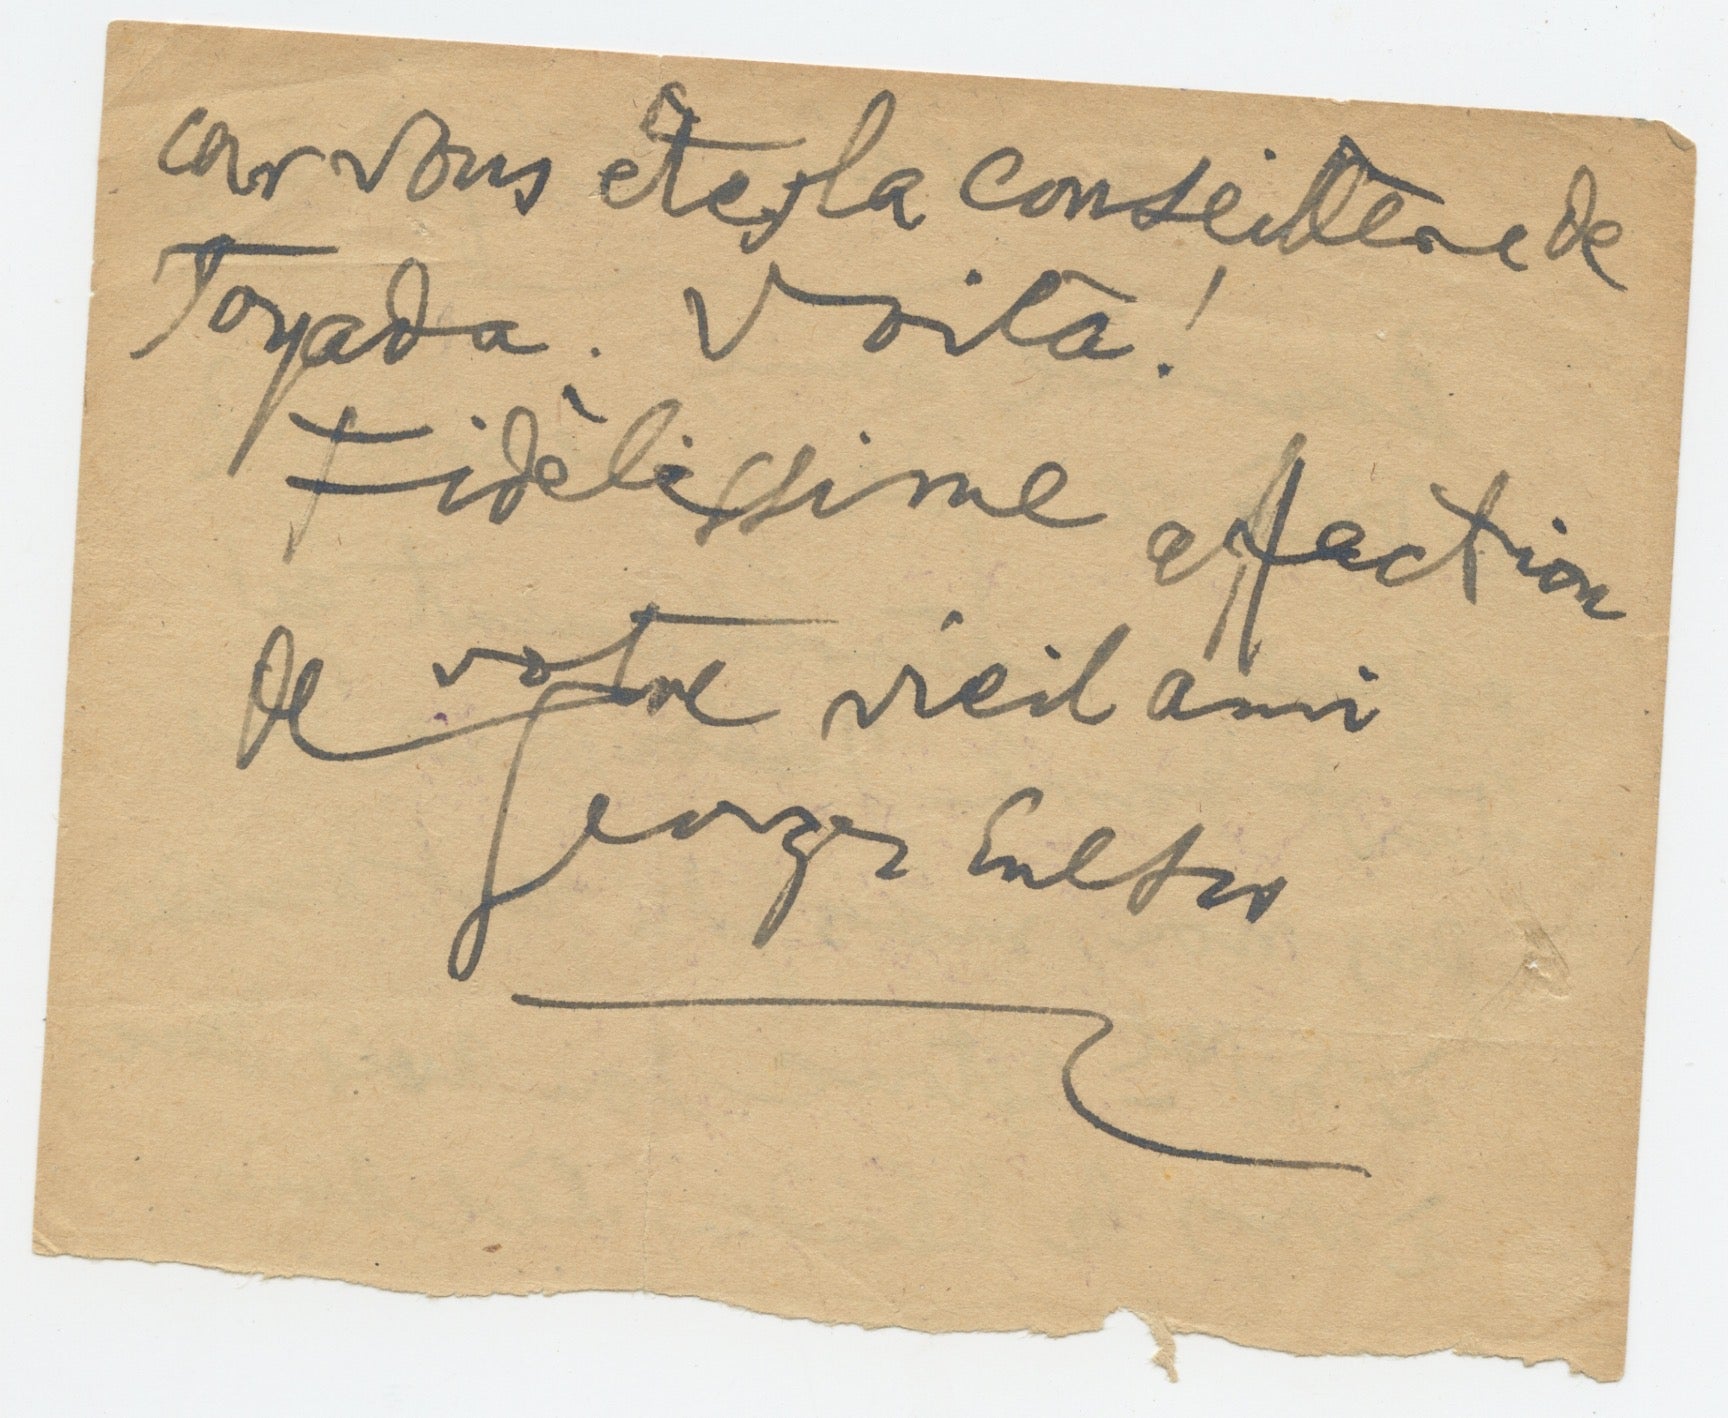 car vous êtes la conseillère de
Toyada. Voilà!
Fidèlissime affection
de votre vieil ami
Georges